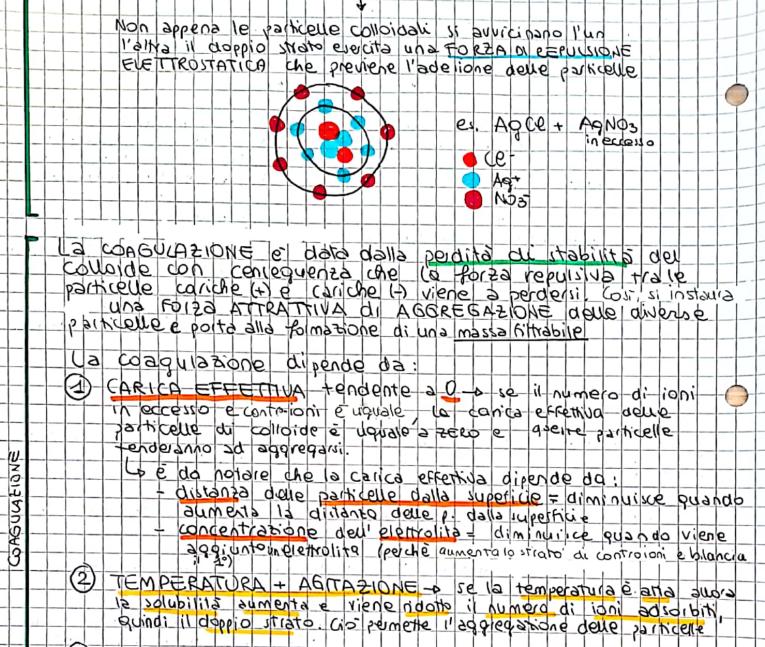 Non appena le particelle colloidali si avvicinano l'un
l'altra il doppio strato esercita una FORZA DI REPULSIONE
ELETTROSTATICA che previene l'adesione delle particelle
es. AgCl + AgNO3
in eccesso
Cl-
Ag+
NO3-
La COAGULAZIONE è data dalla perdità di stabilità del
colloide con conseguenza che la forza repulsiva tra le
particelle cariche (+) e cariche (-) viene a perdersi. Così, si instaura
una FORZA ATTRATTIVA di AGGREGAZIONE delle diverse
particelle e porta alla formazione di una massa filtrabile
La coagulazione dipende da:
① CARICA EFFETTIVA tendente a 0 → se il numero di ioni
in eccesso e controioni è uguale, la carica effettiva delle
particelle di colloide è uguale a zero e queste particelle
tenderanno ad aggregarsi.
↳ è da notare che la carica effettiva dipende da:
- distanza delle particelle dalla superficie = diminuisce quando
aumenta la distanza delle p. dalla superficie
- concentrazione dell'elettrolita = diminuisce quando viene
aggiunto un elettrolita (perché aumenta lo strato di controioni e bilancia
COAGULAZIONE
② TEMPERATURA + AGITAZIONE → se la temperatura è alta allora
la solubilità aumenta e viene ridotto il numero di ioni adsorbiti,
quindi il doppio strato. Ciò permette l'aggregazione delle particelle